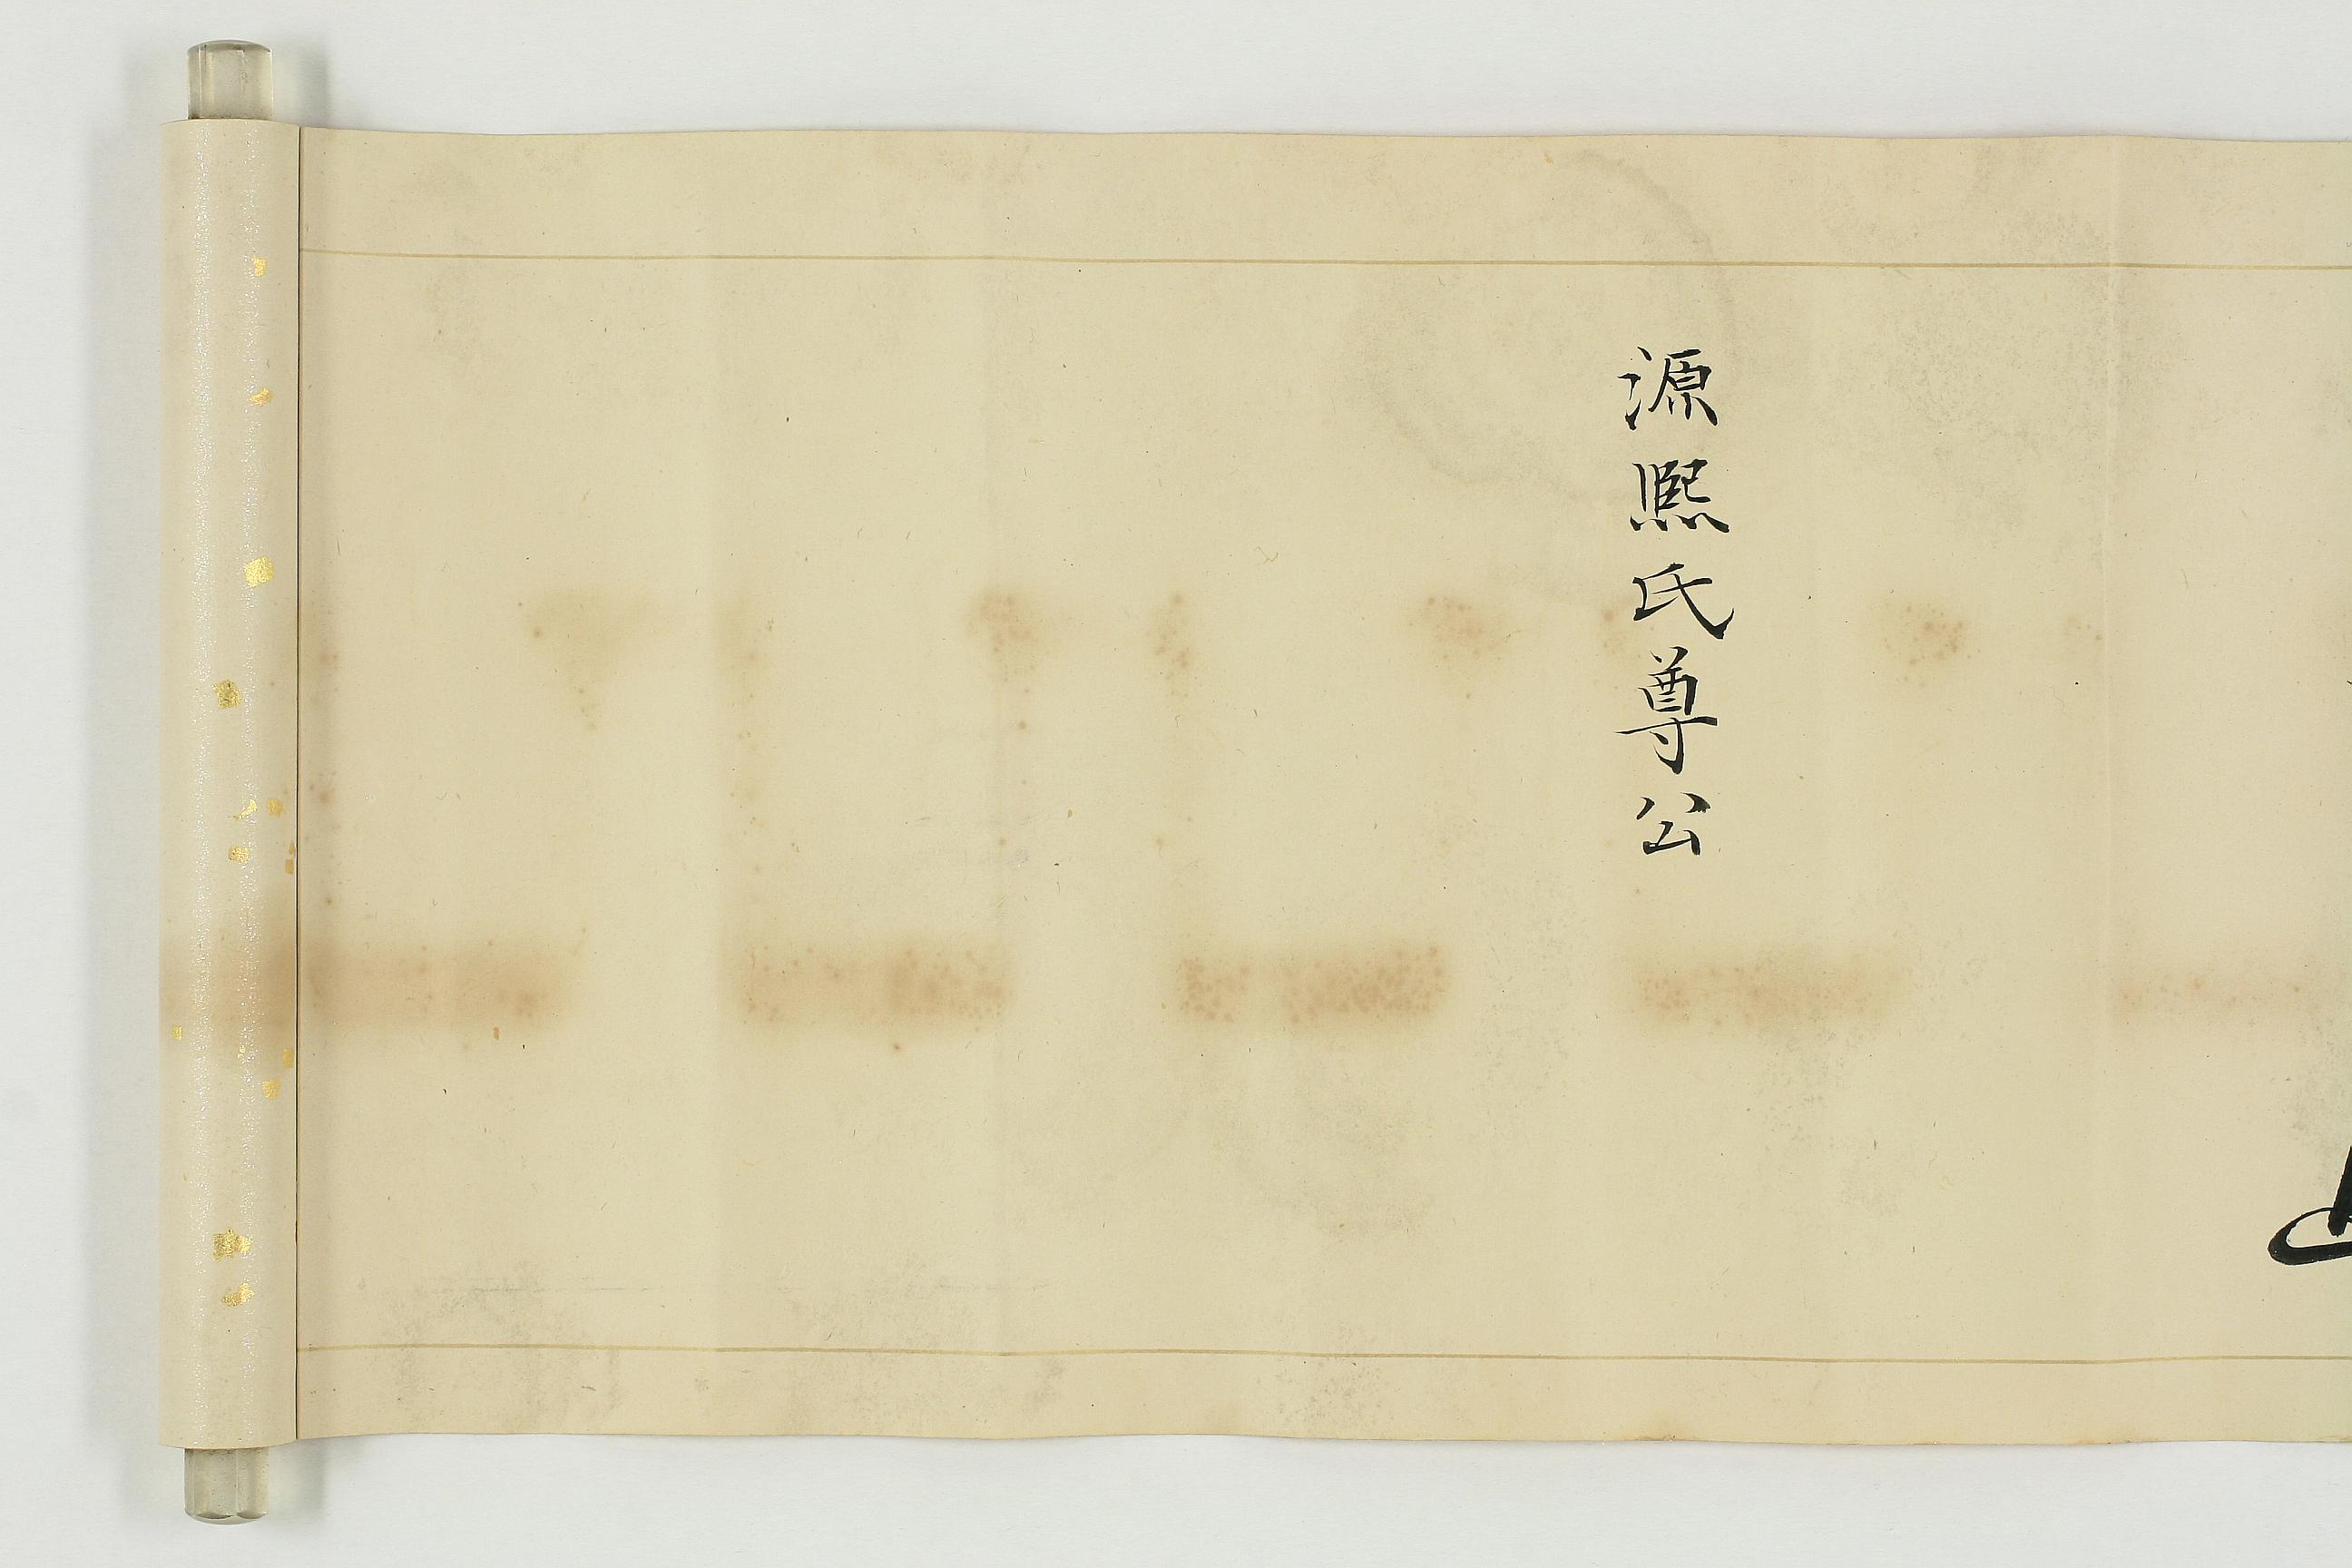 源熙氏尊公